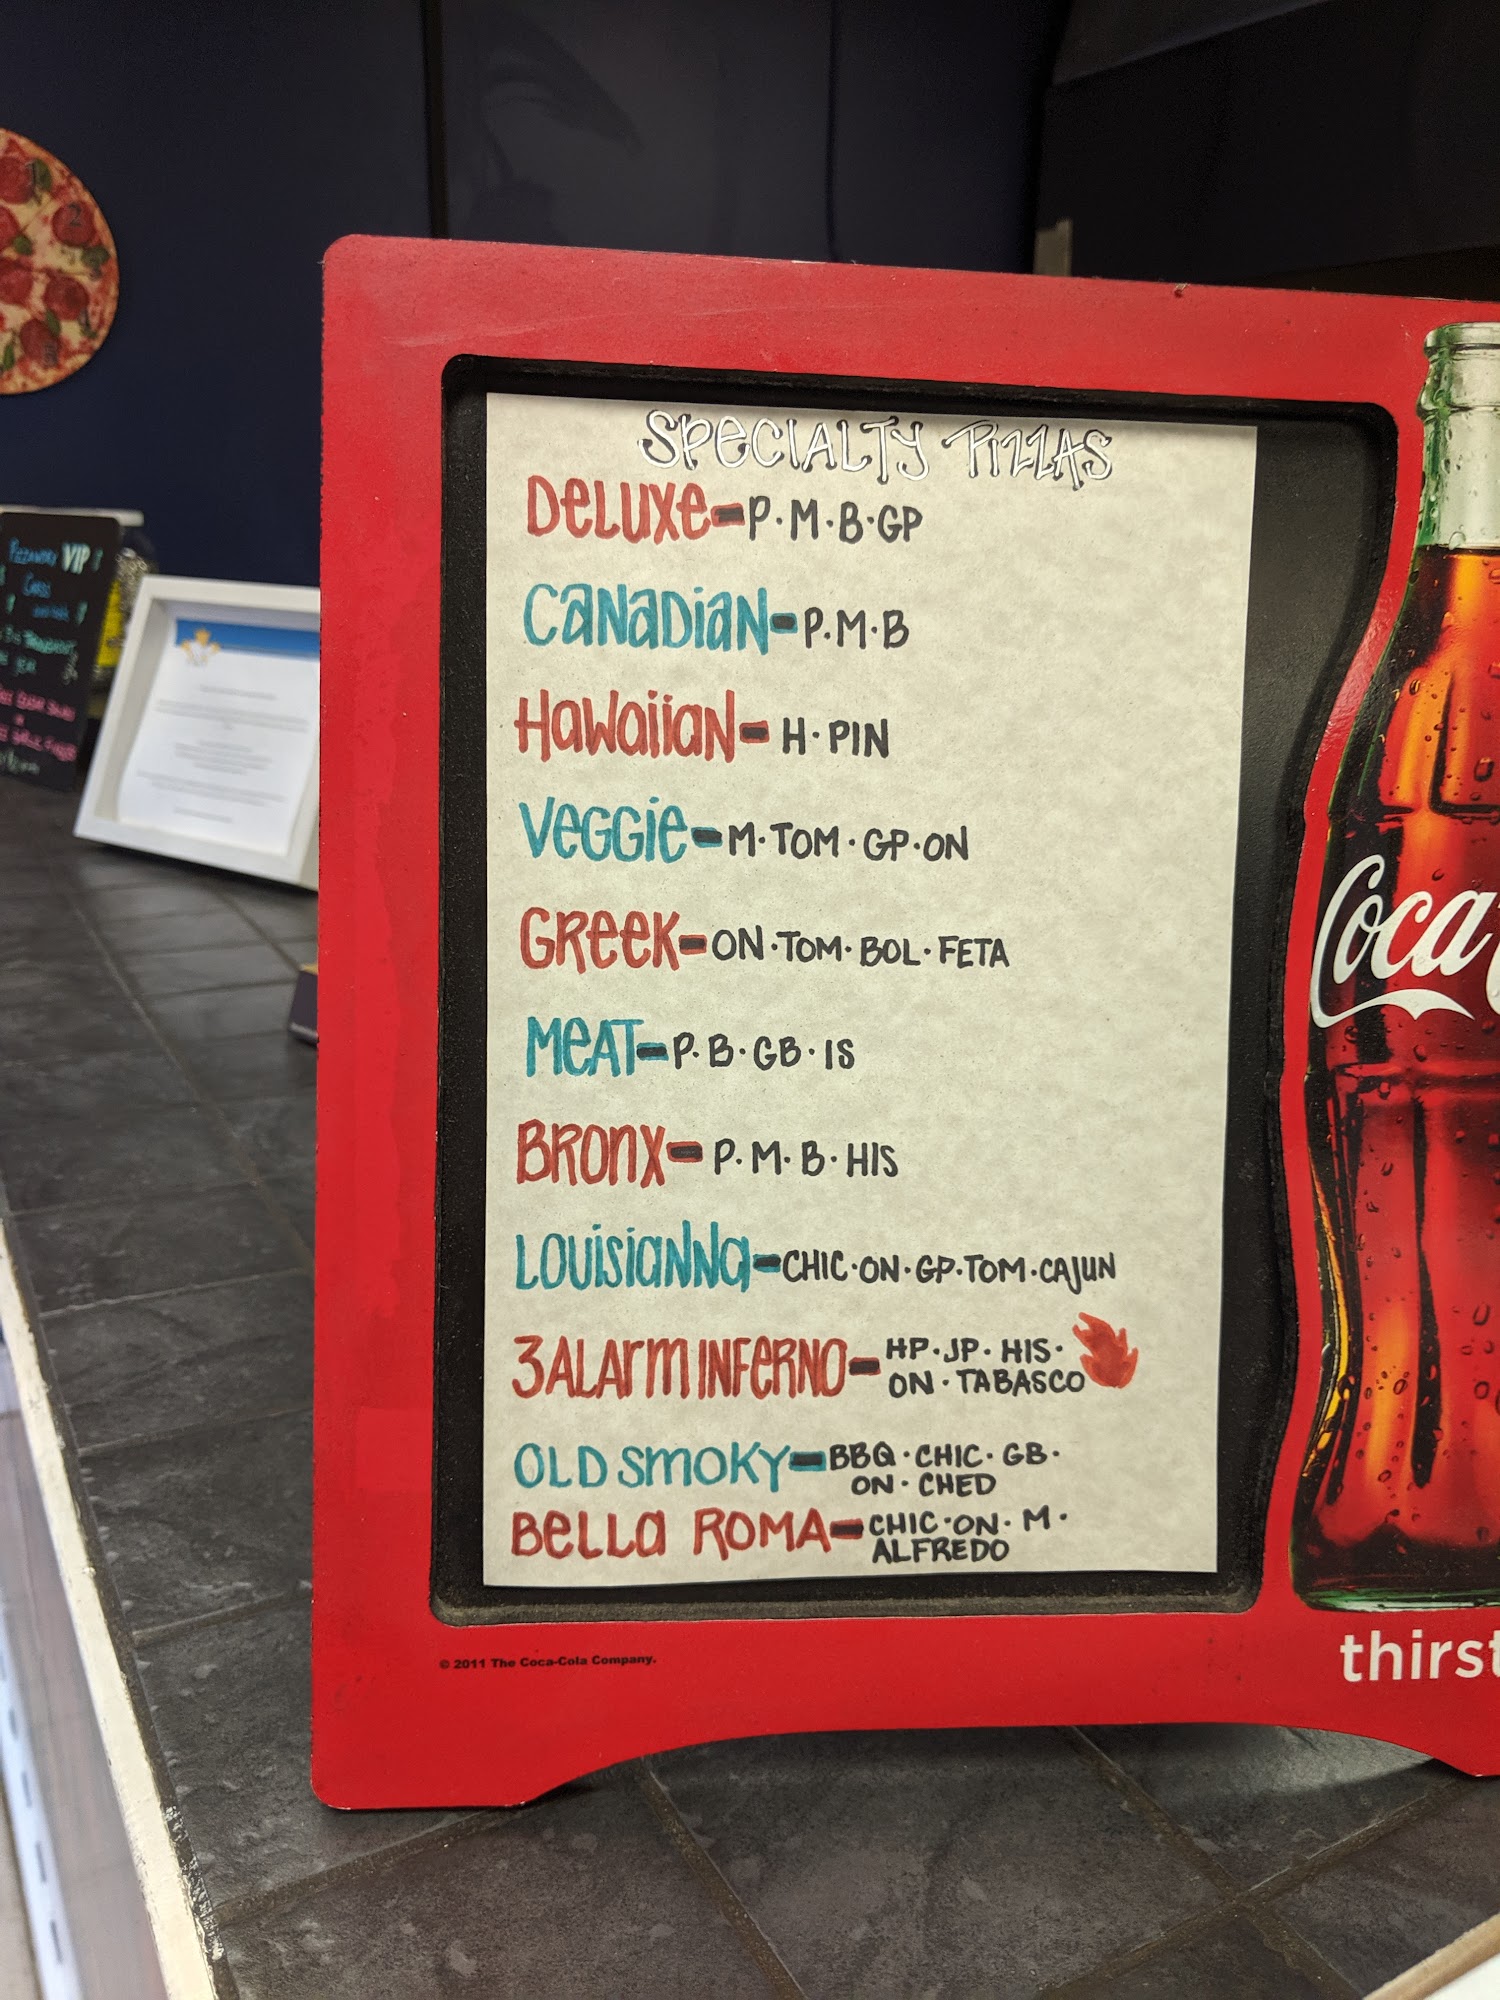 SPECIALTY PIZZAS
DELUXE - P. M. B. GP
CANADIAN - P. M. B
HAWAIIAN - H. PIN
VEGGIE - M. TOM. GP. ON
GREEK - ON. TOM. BOL. FETA
MEAT - P. B. GB. IS
BRONX - P. M. B. HIS
LOUISIANNA - CHIC. ON. GP. TOM. CAJUN
3 ALARM INFERNO - HP. JP. HIS.
ON. TABASCO
OLD SMOKY - BBQ. CHIC. GB.
ON. CHED
BELLA ROMA - CHIC. ON. M.
ALFREDO
© 2011 The Coca-Cola Company.
Coca
thirst
VIP